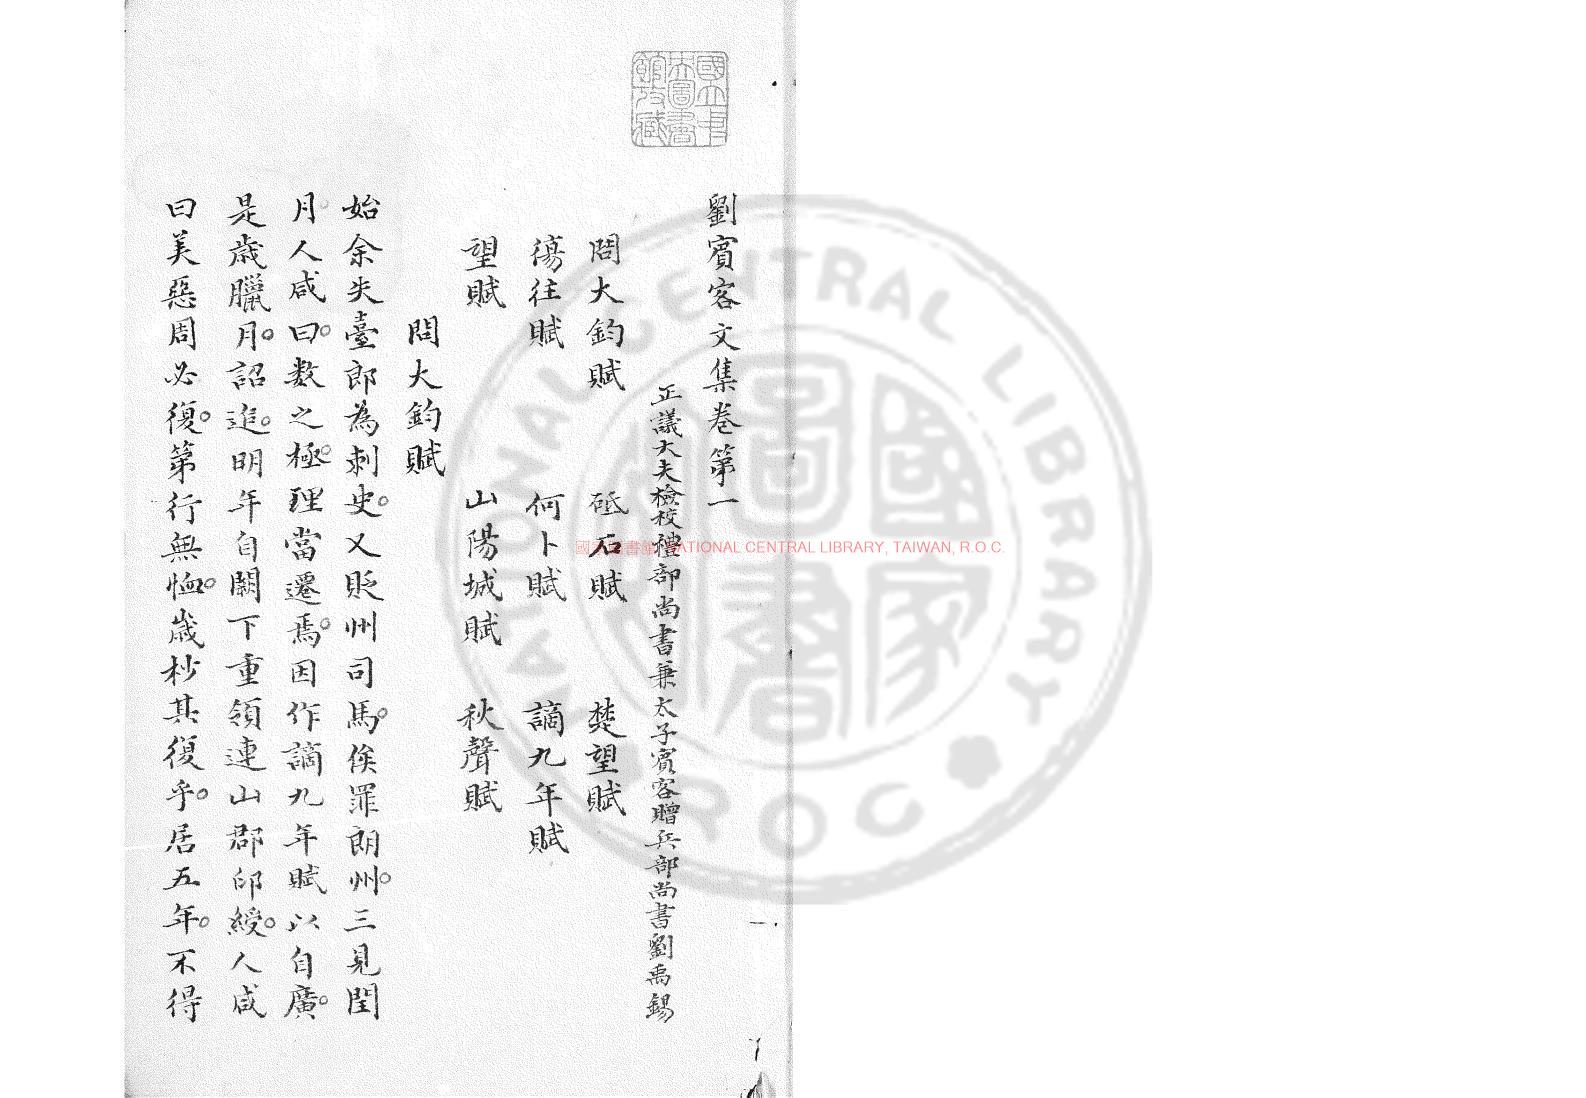 劉賓客文集卷第一
正議大夫檢校禮部尚書兼太子賓客贈兵部尚書劉禹錫
問大鈞賦 砥石賦 楚望賦
傷往賦 何卜賦 謫九年賦
望賦 山陽城賦 秋聲賦
問大鈞賦
始余失臺郎為刺史。又貶州司馬。俟罪朗州。三見閏
月。人咸曰。数之極。理當遷焉。因作謫九年賦以自廣。
是歲臘月。詔追。明年自闕下重領連山郡印綬。人咸
曰美惡周必復。第行無恤。歲杪其復乎。居五年。不得
一
國家圖書館 NATIONAL CENTRAL LIBRARY, TAIWAN, R.O.C.
NATIONAL CENTRAL LIBRARY
R O C
國家圖書
國立中央圖書館收藏